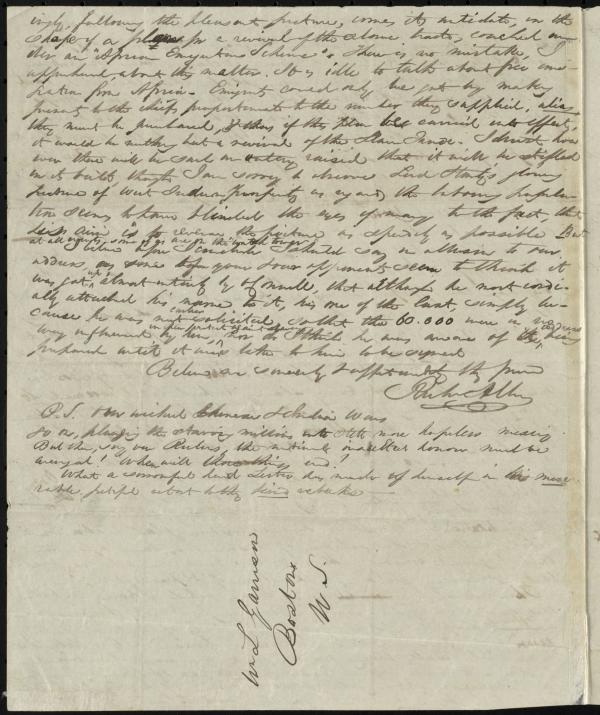 ingly, following the pleasant picture, comes its antidote, in the
shape of a plan for a revival of the above trade, couched un-
der an "African Emigration Scheme". There is no mistake, I
apprehend about this matter. It is idle to talk about free emi-
gration from Africa. Emigrants could only be got by making
presents to the chiefs proportionate to the number they supplied, alias
they must be purchased, & thus if this plan be carried into effect,
it would be nothing but a revival of the Slave Trade. I trust how-
ever there will be such an outcry raised that it will be stifled
in its birth though I am sorry to observe Lord Stanley's glowing
picture of West Indian Prosperity as regards the laboring popula-
tion seems to have blinded the eyes of many to the fact, that
his aim is to reverse the picture as speedily as possible. But
at all events, some of us are on the watch tower
I believe I should say in allusion to our
address, as some of your opponents seem to think it
was got up almost entirely by O'Connell, that although he most cordi-
ally attached his name to it, his one of the last, simply be-
cause he was not earlier solicited, so that the 60.000 were in no degree
way influenced by him, nor do I think he was aware of its being
prepared until it was taken to him to be signed
Believe me sincerely & affectionately thy friend
Richd Allen
P.S. Our wicked Chinese & Indian Wars
go on, plunging the starving millions into still more hopeless misery.
But then, say our Rulers, the nation's insulted honour must be
avenged! When will these things end!
What a sorrowful deal Lister has made of himself in his mise-
rable, pitiful retort to thy kind rebuke
Wm L Garrison
Boston
U S.